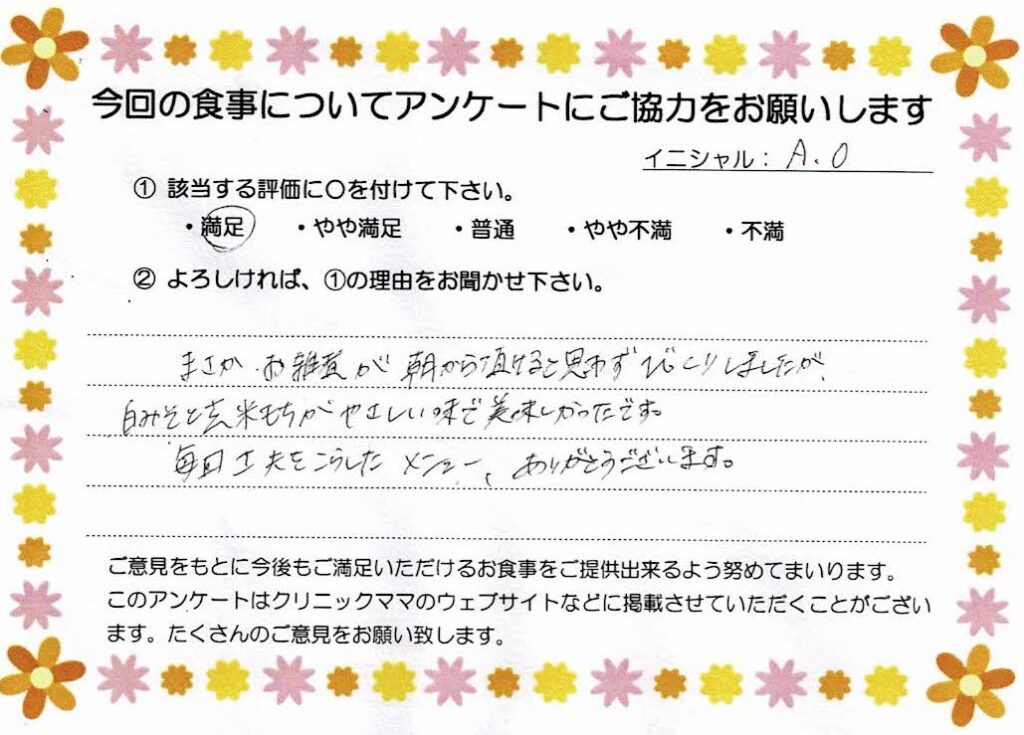 今回の食事についてアンケートにご協力をお願いします
イニシャル： A.O
① 該当する評価に〇を付けて下さい。
・満足 ・やや満足 ・普通 ・やや不満 ・不満
② よろしければ、①の理由をお聞かせ下さい。
まさか お雑煮が 朝から頂けると思わず びっくりしましたが、
白みそと玄米もちが やさしい味で美味しかったです。
毎回工夫をこらしたメニュー、ありがとうございます。
ご意見をもとに今後もご満足いただけるお食事をご提供出来るよう努めてまいります。
このアンケートはクリニックママのウェブサイトなどに掲載させていただくことがござい
ます。たくさんのご意見をお願い致します。